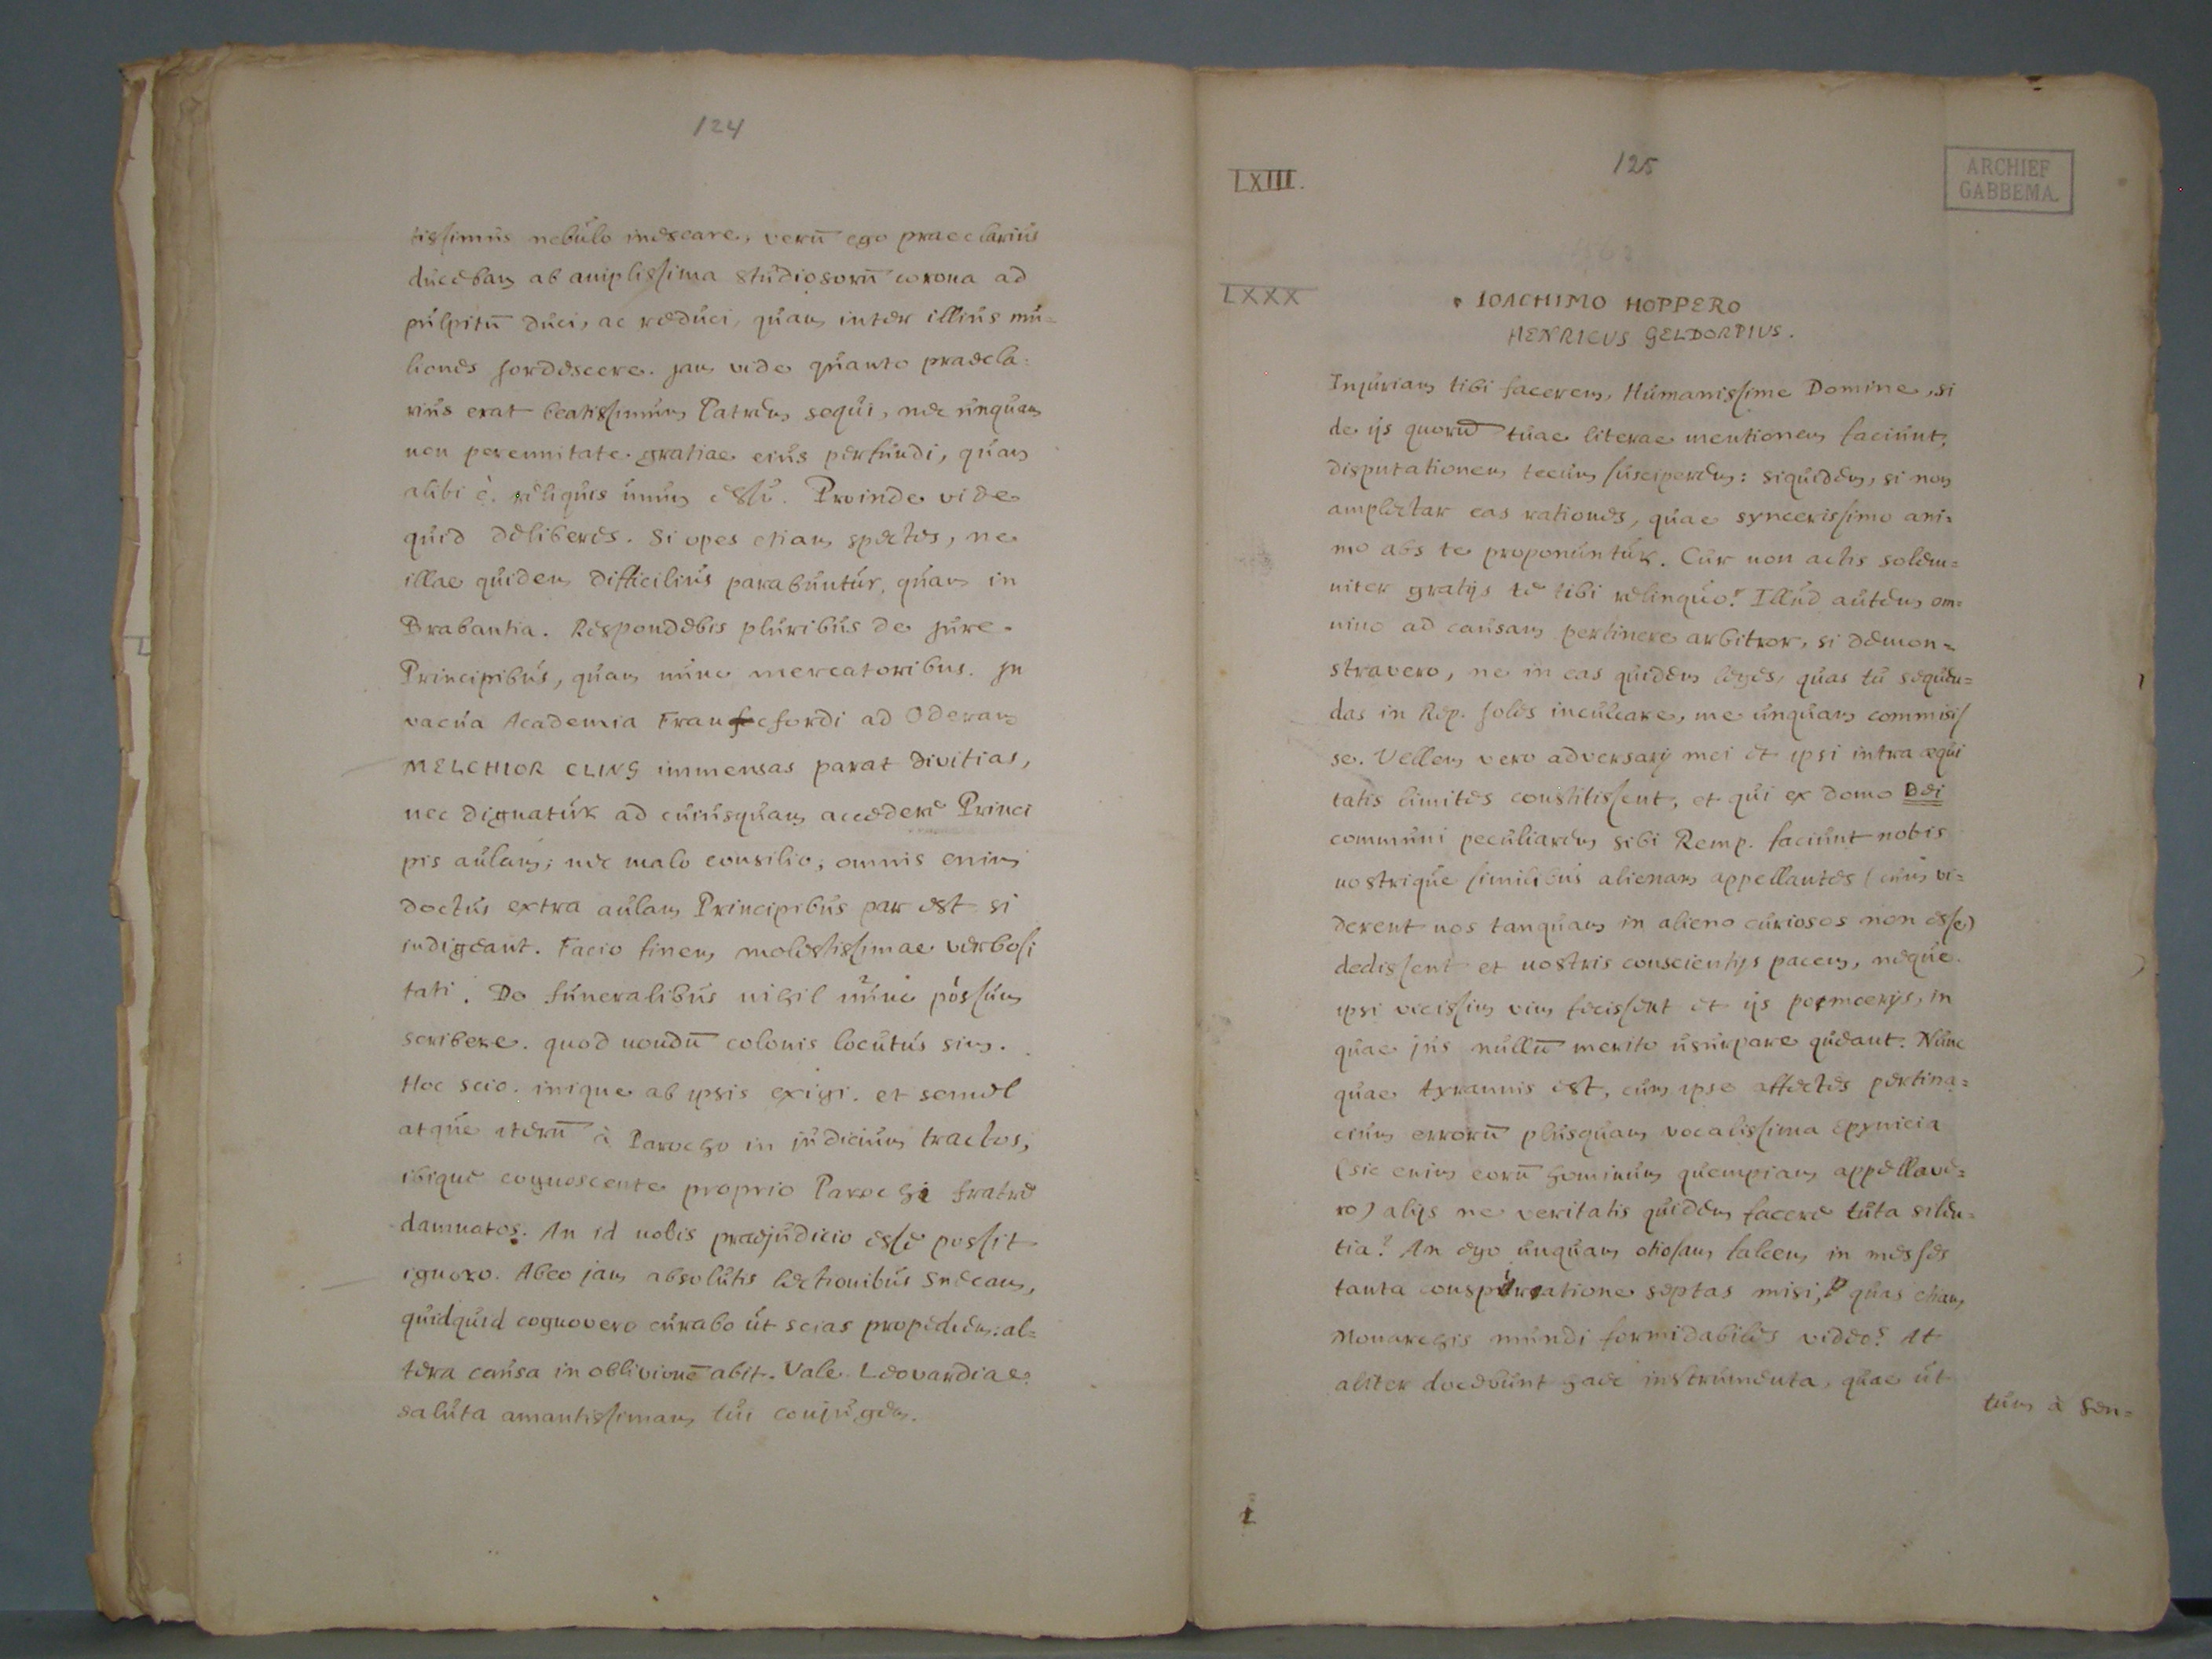 124
tissimus nebulo inescare, verū ego praeclarius
ducebam ab amplissima studiosorū corona ad
pulpitū duci, ac reduci, quam inter illius mu=
liones sordescere. jam vide quanto praecla=
rius erat beatissimum Patrem sequi, nec unquam
non perennitate gratiae eius perfundi, quam
alibi è reliquis unum esse. Proinde vide
quid deliberes. Si opes etiam spectes, ne
illae quidem difficilius parabuntur, quam in
Brabantia. Respondebis pluribus de jure
Principibus, quam nunc mercatoribus. jn
vacua Academia Francfordi ad Oderam
MELCHIOR CLING immensas parat divitias,
nec dignatur ad cuiusquam accedere Princi
pis aulam; nec malo consilio, omnis enim
doctus extra aulam Principibus par est si
indigeant. Facio finem molestissimae verbosi
tati. De funeralibus nihil nunc possum
scribere. quod nondū colonis locutus sim.
Hoc scio. inique ab ipsis exigi. et semel
atque iterū à Parocho in judicium tractos,
ibique cognoscente proprio Parochi fratre
damnatos. An id nobis praejudicio esse possit
ignoro. Abeo jam absolutis lectionibus Snecam,
quidquid cognovero curabo ut scias propediem: al=
tera causa in oblivionē abit. Vale. Leovardiae.
saluta amantissimam tui conjugem.
LXIII.
125
ARCHIEF
GABBEMA.
LXXX
IOACHIMO HOPPERO
HENRICUS GELDORPIUS.
Injuriam tibi facerem, Humanissime Domine, si
de ijs quorū tuae literae mentionem faciunt,
disputationem tecum susciperem: siquidem, si non
amplectar eas rationes, quae syncerissimo ani=
mo abs te proponuntur. Cur non actis solem=
niter gratijs te tibi relinquo? Illud autem om=
nino ad causam pertinere arbitror, si demon=
stravero, ne in eas quidem leges, quas tu sequen=
das in Rep. soles inculcare, me unquam commisis
se. Vellem vero adversarij mei et ipsi intra æqui
tatis limites constitissent, et qui ex domo Dei
communi peculiarem sibi Remp. faciunt nobis
nostrique similibus alienam appellantes (cum vi=
derent nos tanquam in alieno curiosos non esse)
dedissent et nostris conscientijs pacem, neque
ipsi vicissim vim fecissent et ijs pormoerijs, in
quae jus nullū merito usurpare queant. Nunc
quae tyrannis est, cum ipse affectes pertina=
cium errorū plusquam vocalissima epynicia
(sic enim eorū hominum quempiam appellave=
ro) alijs ne veritatis quidem facere tuta silen=
tia? An ego unquam otiosam falcem in messes
tanta conspiratione septas misi, quas etiam
Monarchis mundi formidabiles video? At
aliter docebunt haec instrumenta, quae ut
tum à Sen=